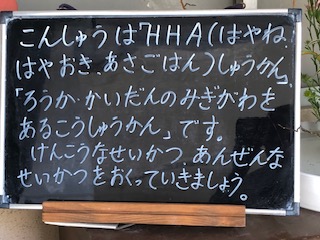 こんしゅうは「HHA(はやね、
はやおき、あさごはん)しゅうかん」、
「ろうか・かいだんのみぎがわを
あるこうしゅうかん」です。
けんこうなせいかつ、あんぜんな
せいかつをおくっていきましょう。